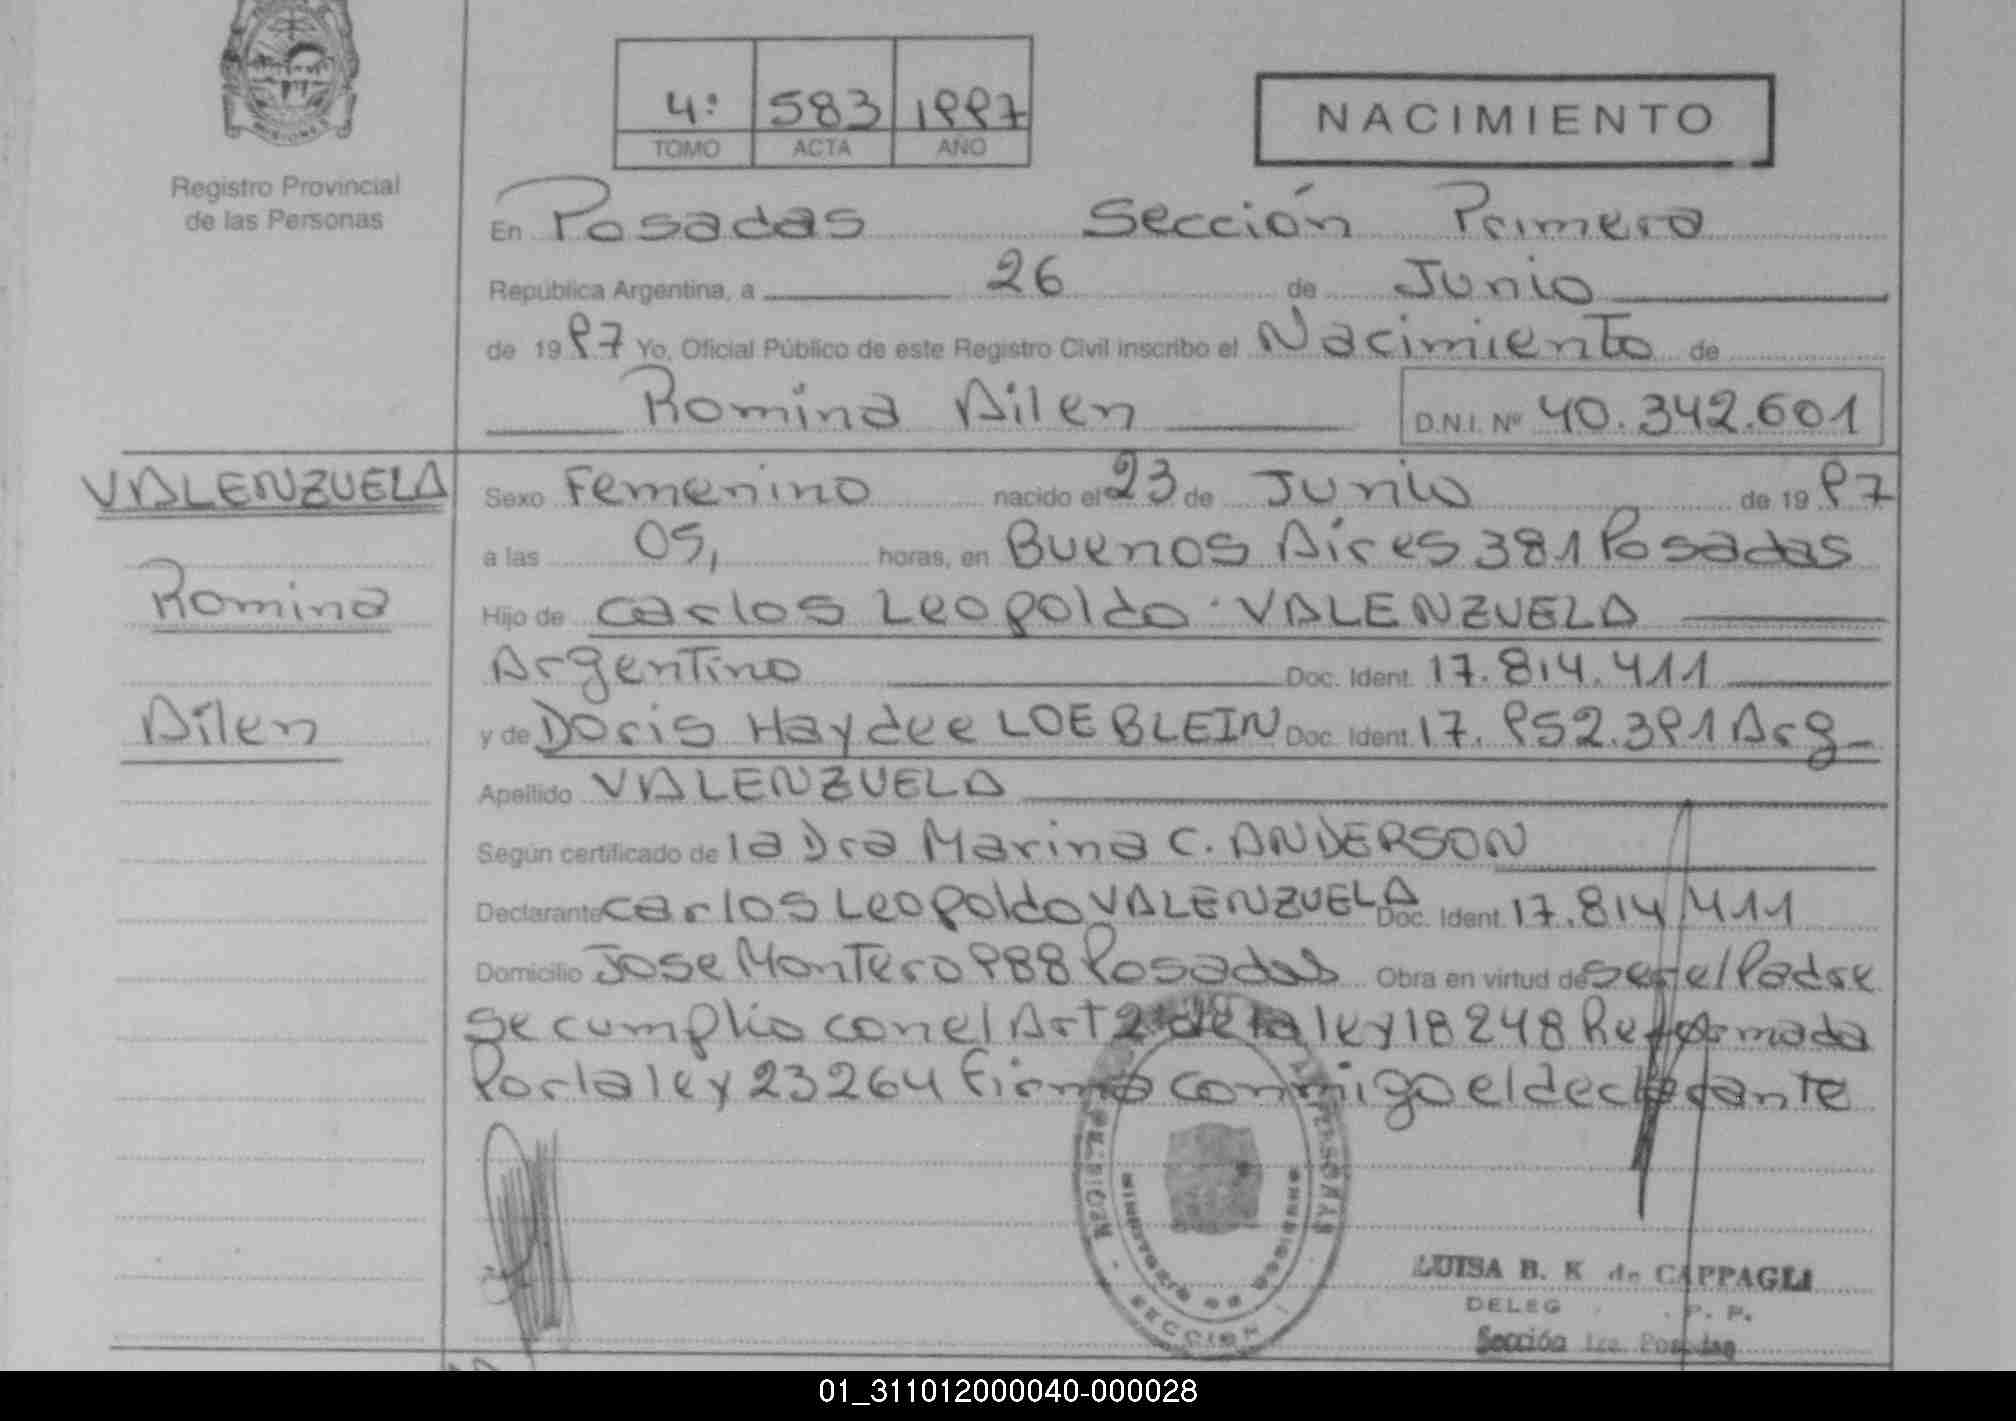 MISIONES
Registro Provincial
de las Personas
4: 583 1997
TOMO ACTA AÑO
NACIMIENTO
En Posadas Sección Primera
República Argentina, a 26 de Junio
de 1997 Yo, Oficial Público de este Registro Civil inscribo el Nacimiento de
Romina Ailen D.N.I. Nº 40.342.601
VALENZUELA
Romina
Ailen
Sexo Femenino nacido el 23 de Junio de 1997
a las 05, horas, en Buenos Aires 381 Posadas
Hijo de Carlos Leopoldo VALENZUELA
Argentino Doc. Ident. 17.814.411
y de Doris Haydee LOEBLEIN Doc. Ident. 17.952.391 Arg
Apellido VALENZUELA
Según certificado de la Dra Marina C. ANDERSON
Declarante Carlos Leopoldo VALENZUELA Doc. Ident. 17.814.411
Domicilio Jose Montero 988 Posadas Obra en virtud de ser el Padre
se cumplio con el Art 2 de la ley 18248 Reformada
Por la ley 23264 firma conmigo el declarante
MINISTERIO DE GOBIERNO
SECCION
LUISA B. K de CAPPAGLI
DELEG R. P. P.
Sección 1ra. Posadas
01_311012000040-000028